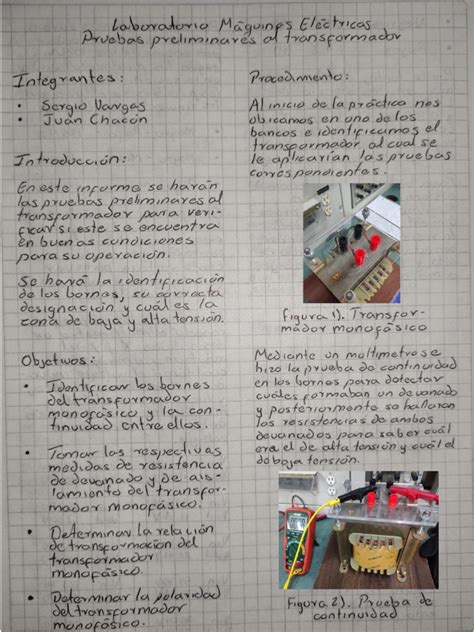 Laboratorio Máquinas Eléctricas
Pruebas preliminares al transformador
Integrantes:
• Sergio Vargas
• Juan Chacón
Introducción:
En este informe se harán
las pruebas preliminares al
transformador para veri-
ficar si este se encuentra
en buenas condiciones
para su operación.
Se hará la identificación
de los bornes, su correcta
designación y cuál es la
zona de baja y alta tensión.
Objetivos:
• Identificar los bornes
del transformador
monofásico y la con-
tinuidad entre ellos.
• Tomar las respectivas
medidas de resistencia
de devanado y de ais-
lamiento del transfor-
mador monofásico.
• Determinar la relación
de transformación del
transformador
monofásico.
• Determinar la polaridad
del transformador
monofásico.
Procedimiento:
Al inicio de la práctica nos
ubicamos en uno de los
bancos e identificamos el
transformador al cual se
le aplicarían las pruebas
correspondientes.
Figura 1). Transfor-
mador monofásico
Mediante un multímetro se
hizo la prueba de continuidad
en los bornes para detectar
cuáles formaban un devanado
y posteriormente se hallaron
las resistencias de ambos
devanados para saber cuál
era el de alta tensión y cuál el
de baja tensión.
Figura 2). Prueba de
continuidad